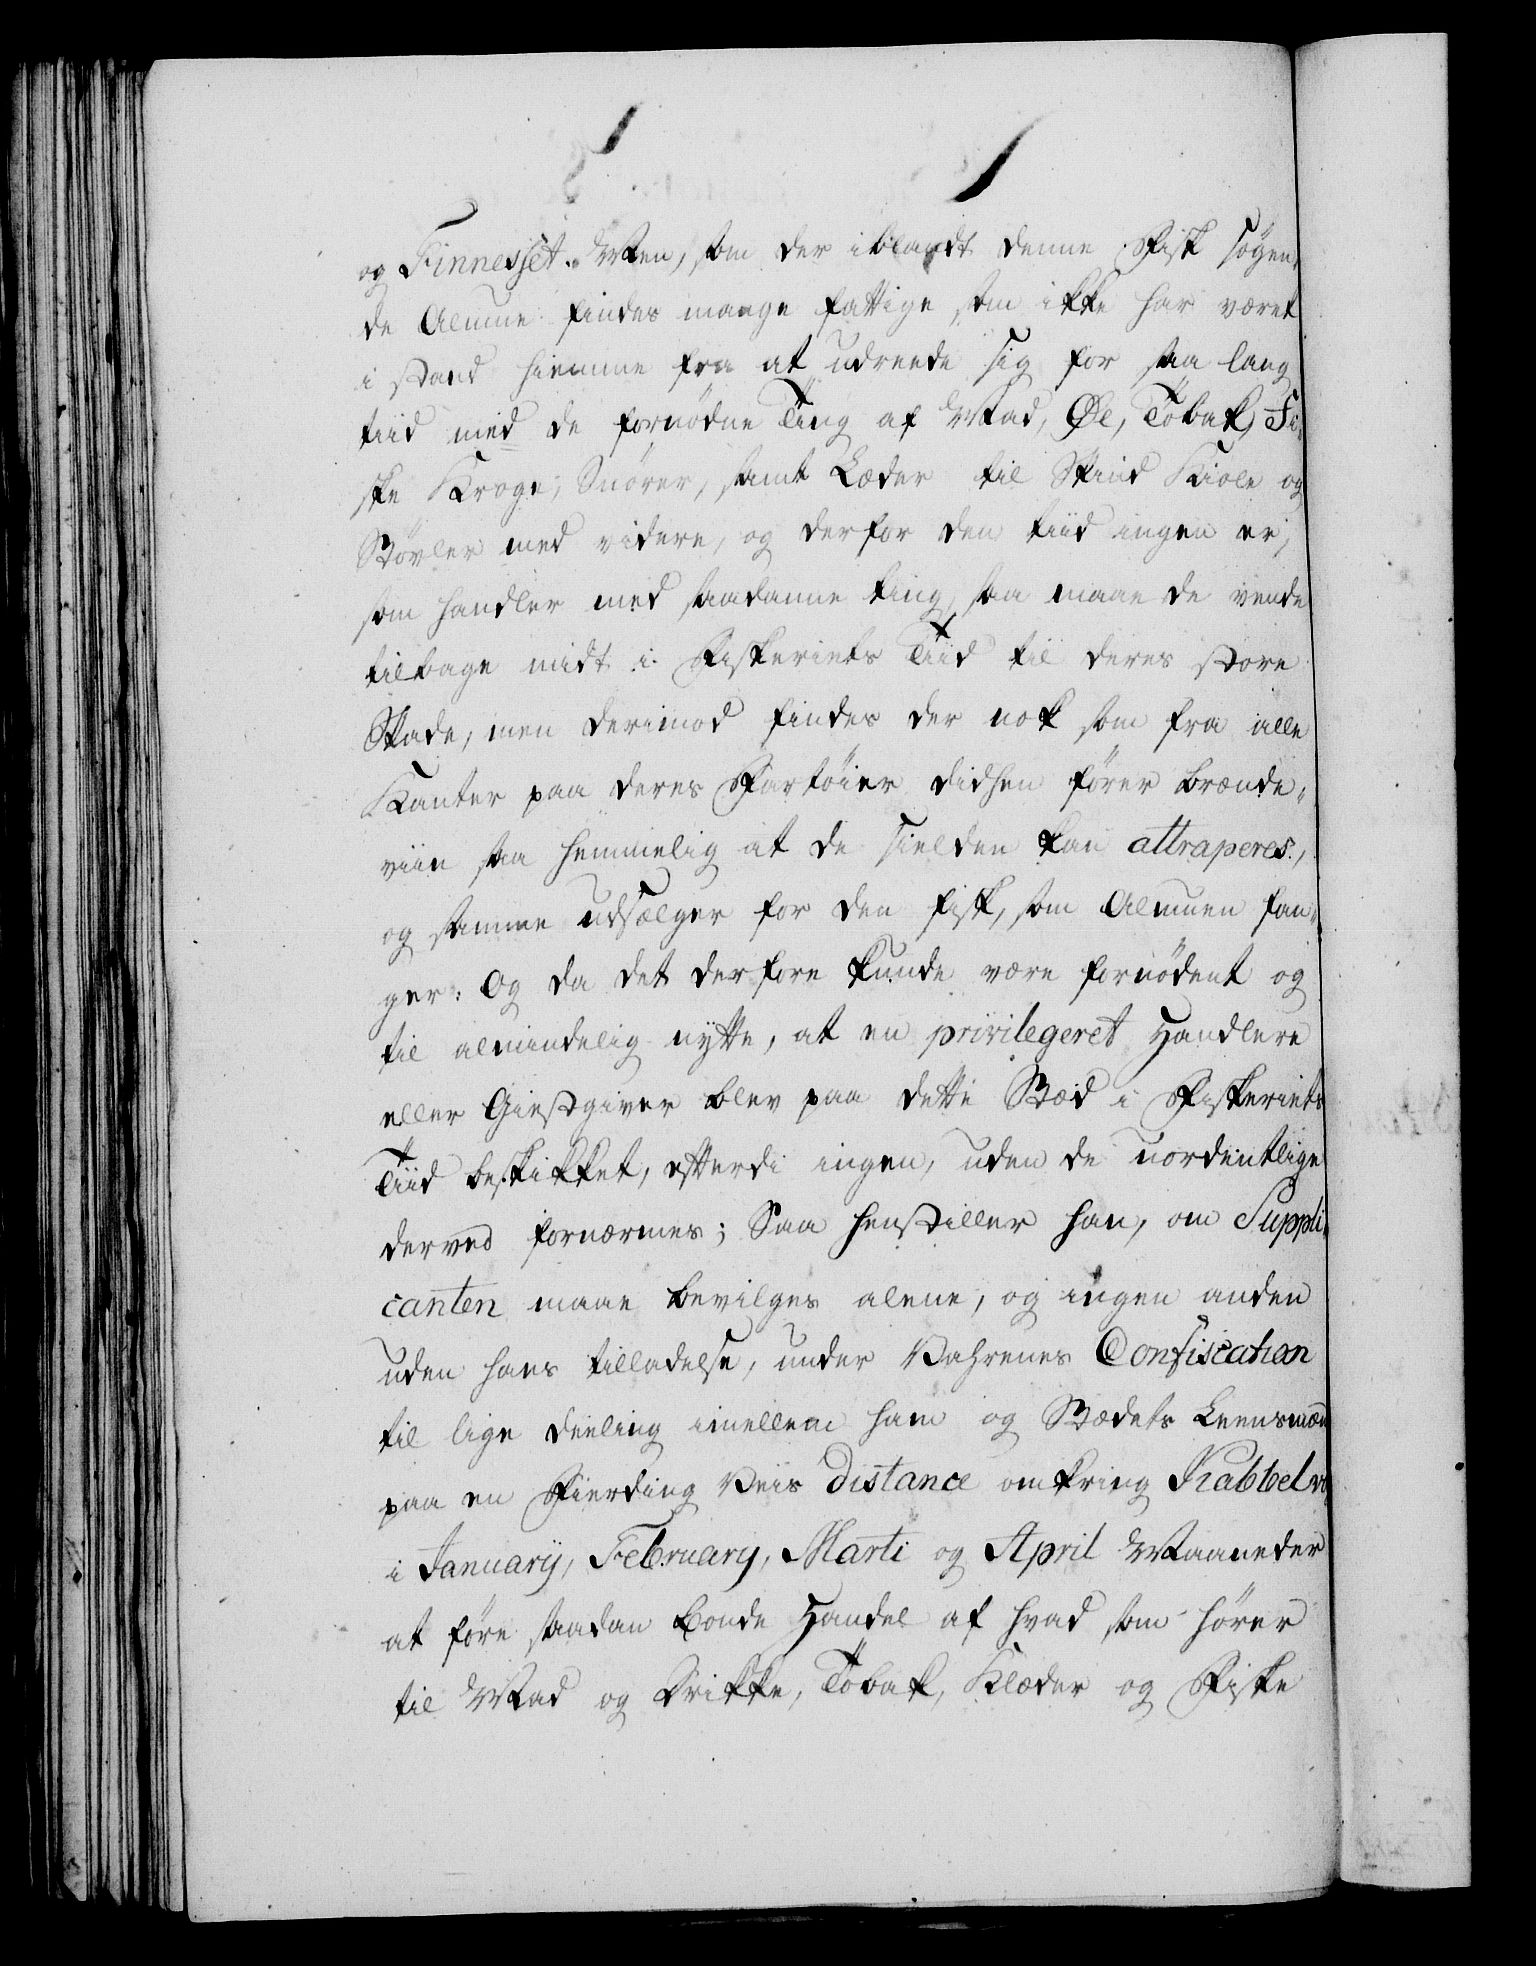 og Finnesset. Men, som der iblandt denne Fisk søgen„
de Almue findes mange fattige som ikke har været
i stand hiemme fra at udreede sig for saa lang
tiid med de fornødne Ting af Mad, Øl, Tobak, Fi„
ske Kroge, Snører, samt Læder til Skind Kiole og
Støvler med videre, og derfor den tiid ingen er,
som handler med saadanne ting, saa maae de vende
tilbage midt i Fiskeriets Tiid til deres store
Skade, men derimod findes der nok som fra alle
Kanter paa deres Fartøier didhen fører brænde„
viin saa hemmelig at de sielden kan attraperes,
og samme udsælger for den fisk, som Almuen fan„
ger: Og da det derfore kunde være fornødent og
til almindelig nytte, at en privilegeret Handlere
eller Giestgiver blev paa dette Stæd i Fiskeriets
Tiid beskikket, efterdi ingen, uden de uordentlige
derved fornærmes; Saa henstiller han, om Suppli„
canten maae bevilges alene, og ingen anden
uden hans tilladelse, under Vahrenes Confiscation
til lige deeling imellem ham og Stædets Leensmand
paa en Fierding Veis distance omkring Kabbelv
i Januarij, February, Marti og April Maaneder
at føre saadan Bonde Handel af hvad som hører
til Mad og Drikke, Tobak, Klæder og Fiske